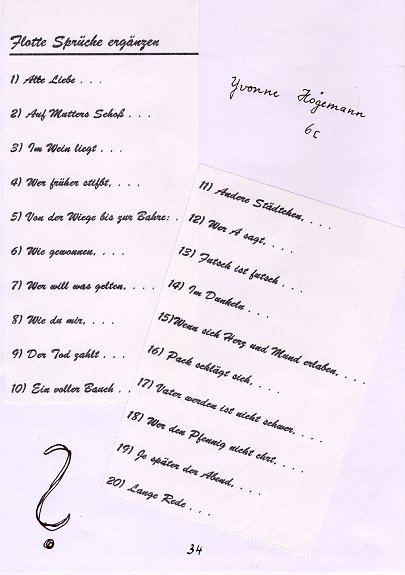 Flotte Sprüche ergänzen
1) Alte Liebe . . .
2) Auf Mutters Schoß . . .
3) Im Wein liegt . . .
4) Wer früher stifbt, . . .
5) Von der Wiege bis zur Bahre: .
6) Wie gewonnen, . . .
7) Wer will was gelten, . . .
8) Wie du mir, . . .
9) Der Tod zahlt . . .
10) Ein voller Bauch . .
Yvonne Högemann
6c
11) Andere Städtchen, . . .
12) Wer A sagt, . . .
13) Futsch ist futsch . . .
14) Im Dunkeln . . .
15)Wenn sich Herz und Mund erlaben, . . .
16) Pack schlägt sich, . . .
17) Vater werden ist nicht schwer, . . .
18) Wer den Pfennig nicht ehrt, . . .
19) Je später der Abend, . . .
20) Lange Rede . . .
?
34